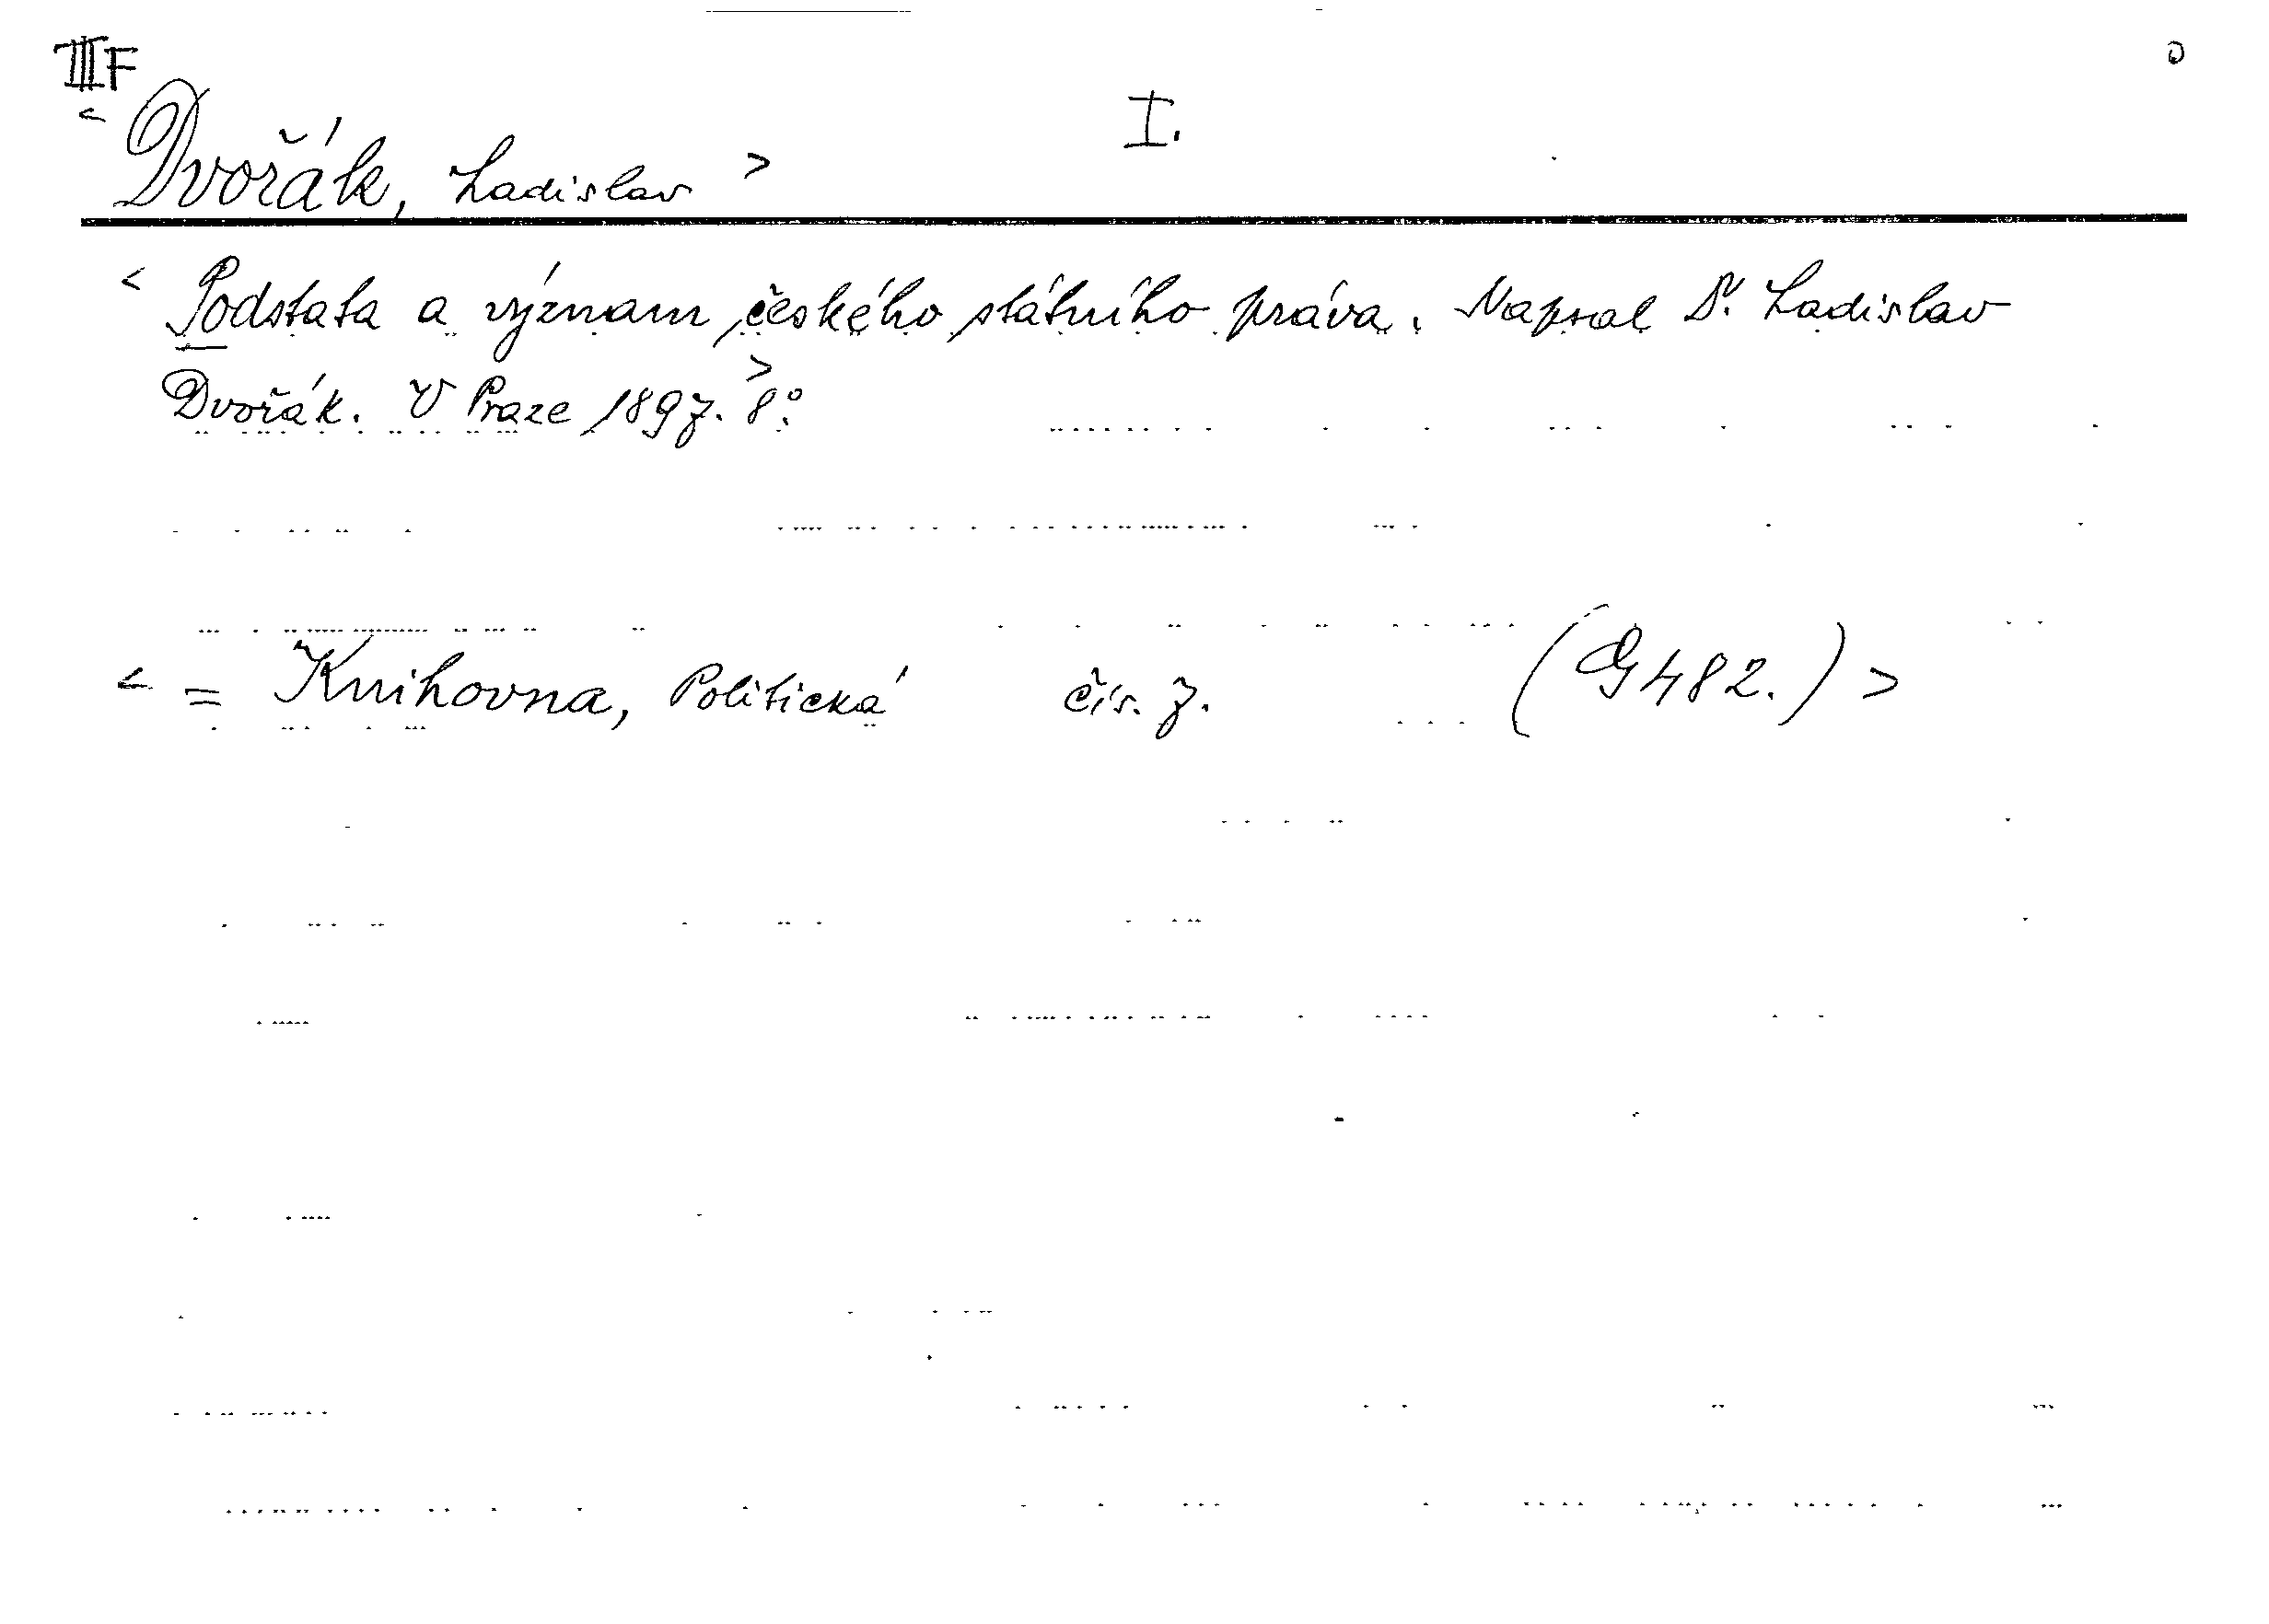 IIIF
I.
< Dvořák, Ladislav >
< Podstata a význam českého státního práva. Napsal Dr. Ladislav
Dvořák. V Praze 1897. > 8°.
< = Knihovna, Politická čís. 7. (G 482.) >